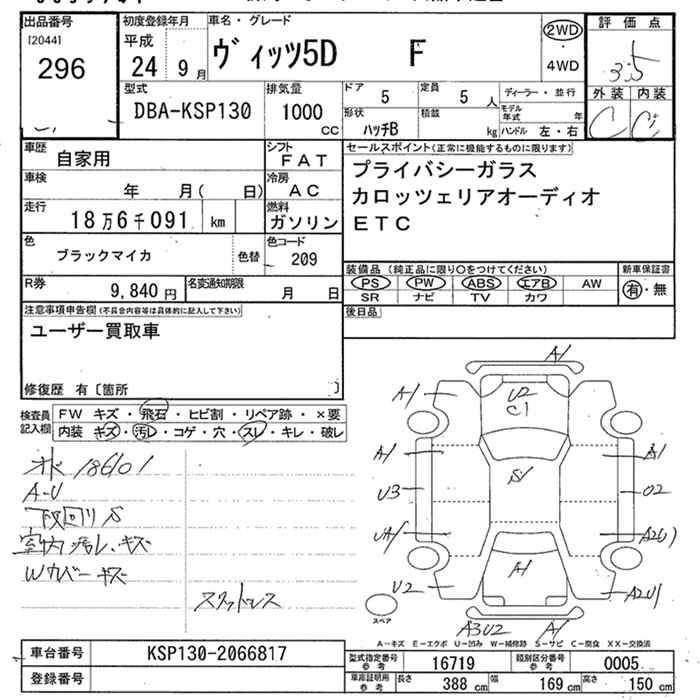 出品番号
[2044]
296
初度登録年月
平成
24 9月
車名・グレード
ヴィッツ5D F
2WD
・
4WD
評価点
3.5
外装 内装
C C
型式
DBA-KSP130
排気量
1000
cc
ドア 5
定員 5 人
形状 ハッチB
積載 kg
ディーラー・並行
モデル年式 年
ハンドル 左・右
車歴
自家用
シフト
FAT
車検
年 月( 日)
冷房
AC
走行
18万6千091 km
燃料
ガソリン
色
ブラックマイカ
色替
色コード
209
R券
9,840円
名変通知期限
月 日
セールスポイント(正常に機能するものに限ります)
プライバシーガラス
カロッツェリアオーディオ
ETC
装備品(純正品に限り○をつけてください)
PS PW ABS エアB AW
SR ナビ TV カワ
新車保証書
有・無
後日品
注意事項申告欄(不具合内容等は具体的に記入して下さい)
ユーザー買取車
修復歴 有〔箇所 〕
検査員
記入欄
FW キズ・飛石・ヒビ割・リペア跡・×要
内装 キズ・汚レ・コゲ・穴・スレ・キレ・破レ
186101
A-U
下回りS
室内汚レ、キズ
Wカバーキズ
スタットレス
A1
A1
U2
C1
A1
A1
S1
U3
U2
UA1
A2U1
A1
U2
A2U1
スペア
A3U2
A1
A-キズ E-エクボ U-凹み W-補修跡 S-サビ C-腐食 XX-交換済
車台番号
KSP130-2066817
登録番号
型式指定番号
参考
16719
類別区分番号
参考
0005
車庫証明用
参考
長さ 388 cm
幅 169 cm
高さ 150 cm